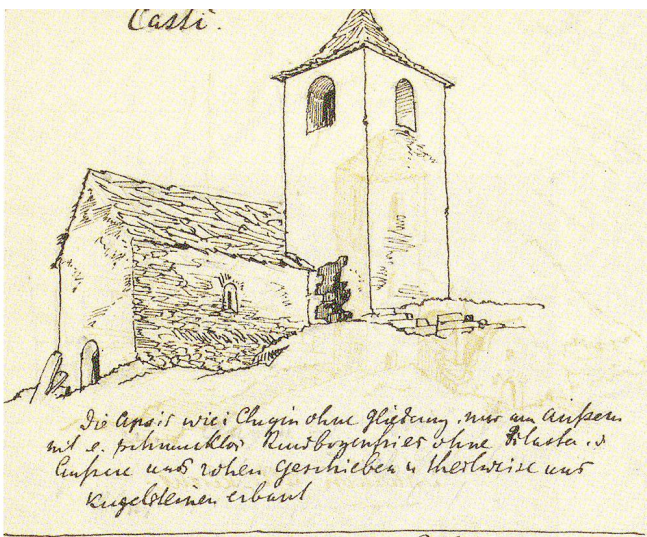 Casti.
Die Apsis wie i Clugin ohne Gliederung. nur am äußern
mit e. schmucklos Rundbogenfries ohne Pilaster. s
äußere aus rohen Geschieben u theilweise aus
Kugelsteinen erbaut